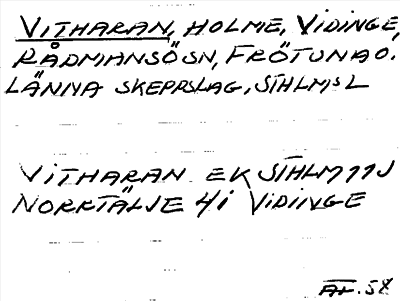 VITHARAN, HOLME, VIDINGE,
RÅDMANSÖ SN, FRÖTUNA O.
LÄNNA SKEPPSLAG, STHLMS L
VITHARAN EK STHLM 11J
NORRTÄLJE 4i VIDINGE
AL. 58